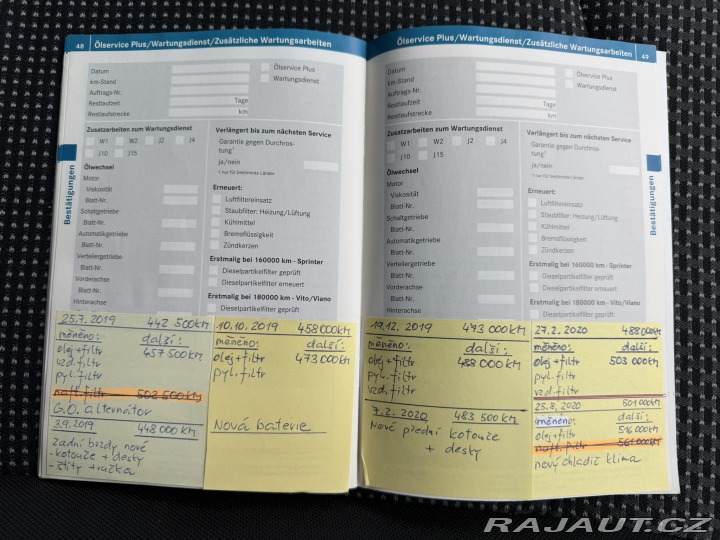 48 Ölservice Plus/Wartungsdienst/Zusätzliche Wartungsarbeiten
Datum
km-Stand
Auftrags-Nr.
Restlaufzeit Tage
Restlaufstrecke km
Ölservice Plus
Wartungsdienst
Zusatzarbeiten zum Wartungsdienst
W1 W2 J2 J4
J10 J15
Ölwechsel
Motor
Viskosität
Blatt-Nr.
Schaltgetriebe
Blatt-Nr.
Automatikgetriebe
Blatt-Nr.
Verteilergetriebe
Blatt-Nr.
Vorderachse
Blatt-Nr.
Hinterachse
Verlängert bis zum nächsten Service
Garantie gegen Durchros-
tung¹
ja/nein
1 nur für bestimmte Länder
Erneuert:
Luftfiltereinsatz
Staubfilter: Heizung/Lüftung
Kühlmittel
Bremsflüssigkeit
Zündkerzen
Erstmalig bei 160000 km - Sprinter
Dieselpartikelfilter geprüft
Dieselpartikelfilter erneuert
Erstmalig bei 180000 km - Vito/Viano
Bestätigungen
25.7. 2019 442 500km
měněno: další:
olej+filtr 457 500km
vzd. filtr
pyl. filtr
naft. filtr 502 500km
G.O. alternátor
3.9.2019 448 000km
zadní brzdy nové
- kotouče + desky
- štíty + ručka
10.10. 2019 458 000km
měněno: další:
olej+filtr 473 000km
pyl. filtr
Nová baterie
Ölservice Plus/Wartungsdienst/Zusätzliche Wartungsarbeiten 49
Datum
km-Stand
Auftrags-Nr.
Restlaufzeit Tage
Restlaufstrecke km
Ölservice Plus
Wartungsdienst
Zusatzarbeiten zum Wartungsdienst
W1 W2 J2 J4
J10 J15
Ölwechsel
Motor
Viskosität
Blatt-Nr.
Schaltgetriebe
Blatt-Nr.
Automatikgetriebe
Blatt-Nr.
Verteilergetriebe
Blatt-Nr.
Vorderachse
Blatt-Nr.
Hinterachse
Verlängert bis zum nächsten Service
Garantie gegen Durchros-
tung¹
ja/nein
1 nur für bestimmte Länder
Erneuert:
Luftfiltereinsatz
Staubfilter: Heizung/Lüftung
Kühlmittel
Bremsflüssigkeit
Zündkerzen
Erstmalig bei 160000 km - Sprinter
Dieselpartikelfilter geprüft
Dieselpartikelfilter erneuert
Erstmalig bei 180000 km - Vito/Viano
Bestätigungen
19.12. 2019 473 000km
měněno: další:
olej+filtr 488 000km
pyl. filtr
vzd. filtr
7.2. 2020 483 500km
Nové přední kotouče
+ desky
27.2. 2020 488 000km
měněno: další:
olej+filtr 503 000km
pyl. filtr
vzd. filtr
25.8. 2020 501 000km
měněno: další:
olej+filtr 516 000km
naft. filtr 561 000km
nový chladič klima
RAJAUT.CZ